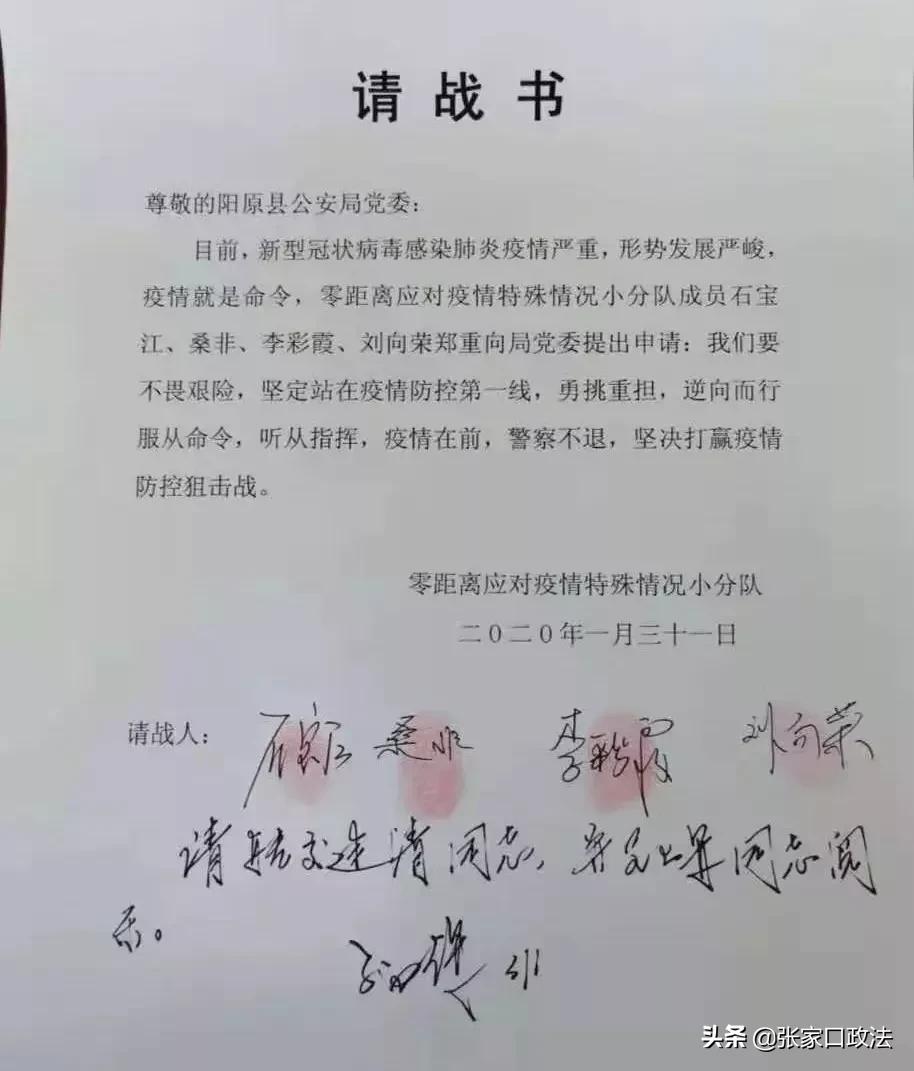 请战书
尊敬的阳原县公安局党委：
目前，新型冠状病毒感染肺炎疫情严重，形势发展严峻，
疫情就是命令，零距离应对疫情特殊情况小分队成员石宝
江、桑非、李彩霞、刘向荣郑重向局党委提出申请：我们要
不畏艰险，坚定站在疫情防控第一线，勇挑重担，逆向而行
服从命令，听从指挥，疫情在前，警察不退，坚决打赢疫情
防控狙击战。
零距离应对疫情特殊情况小分队
二〇二〇年一月三十一日
请战人：石宝江 桑非 李彩霞 刘向荣
请转交连清同志、同志阅
示。
3/1
头条 @张家口政法